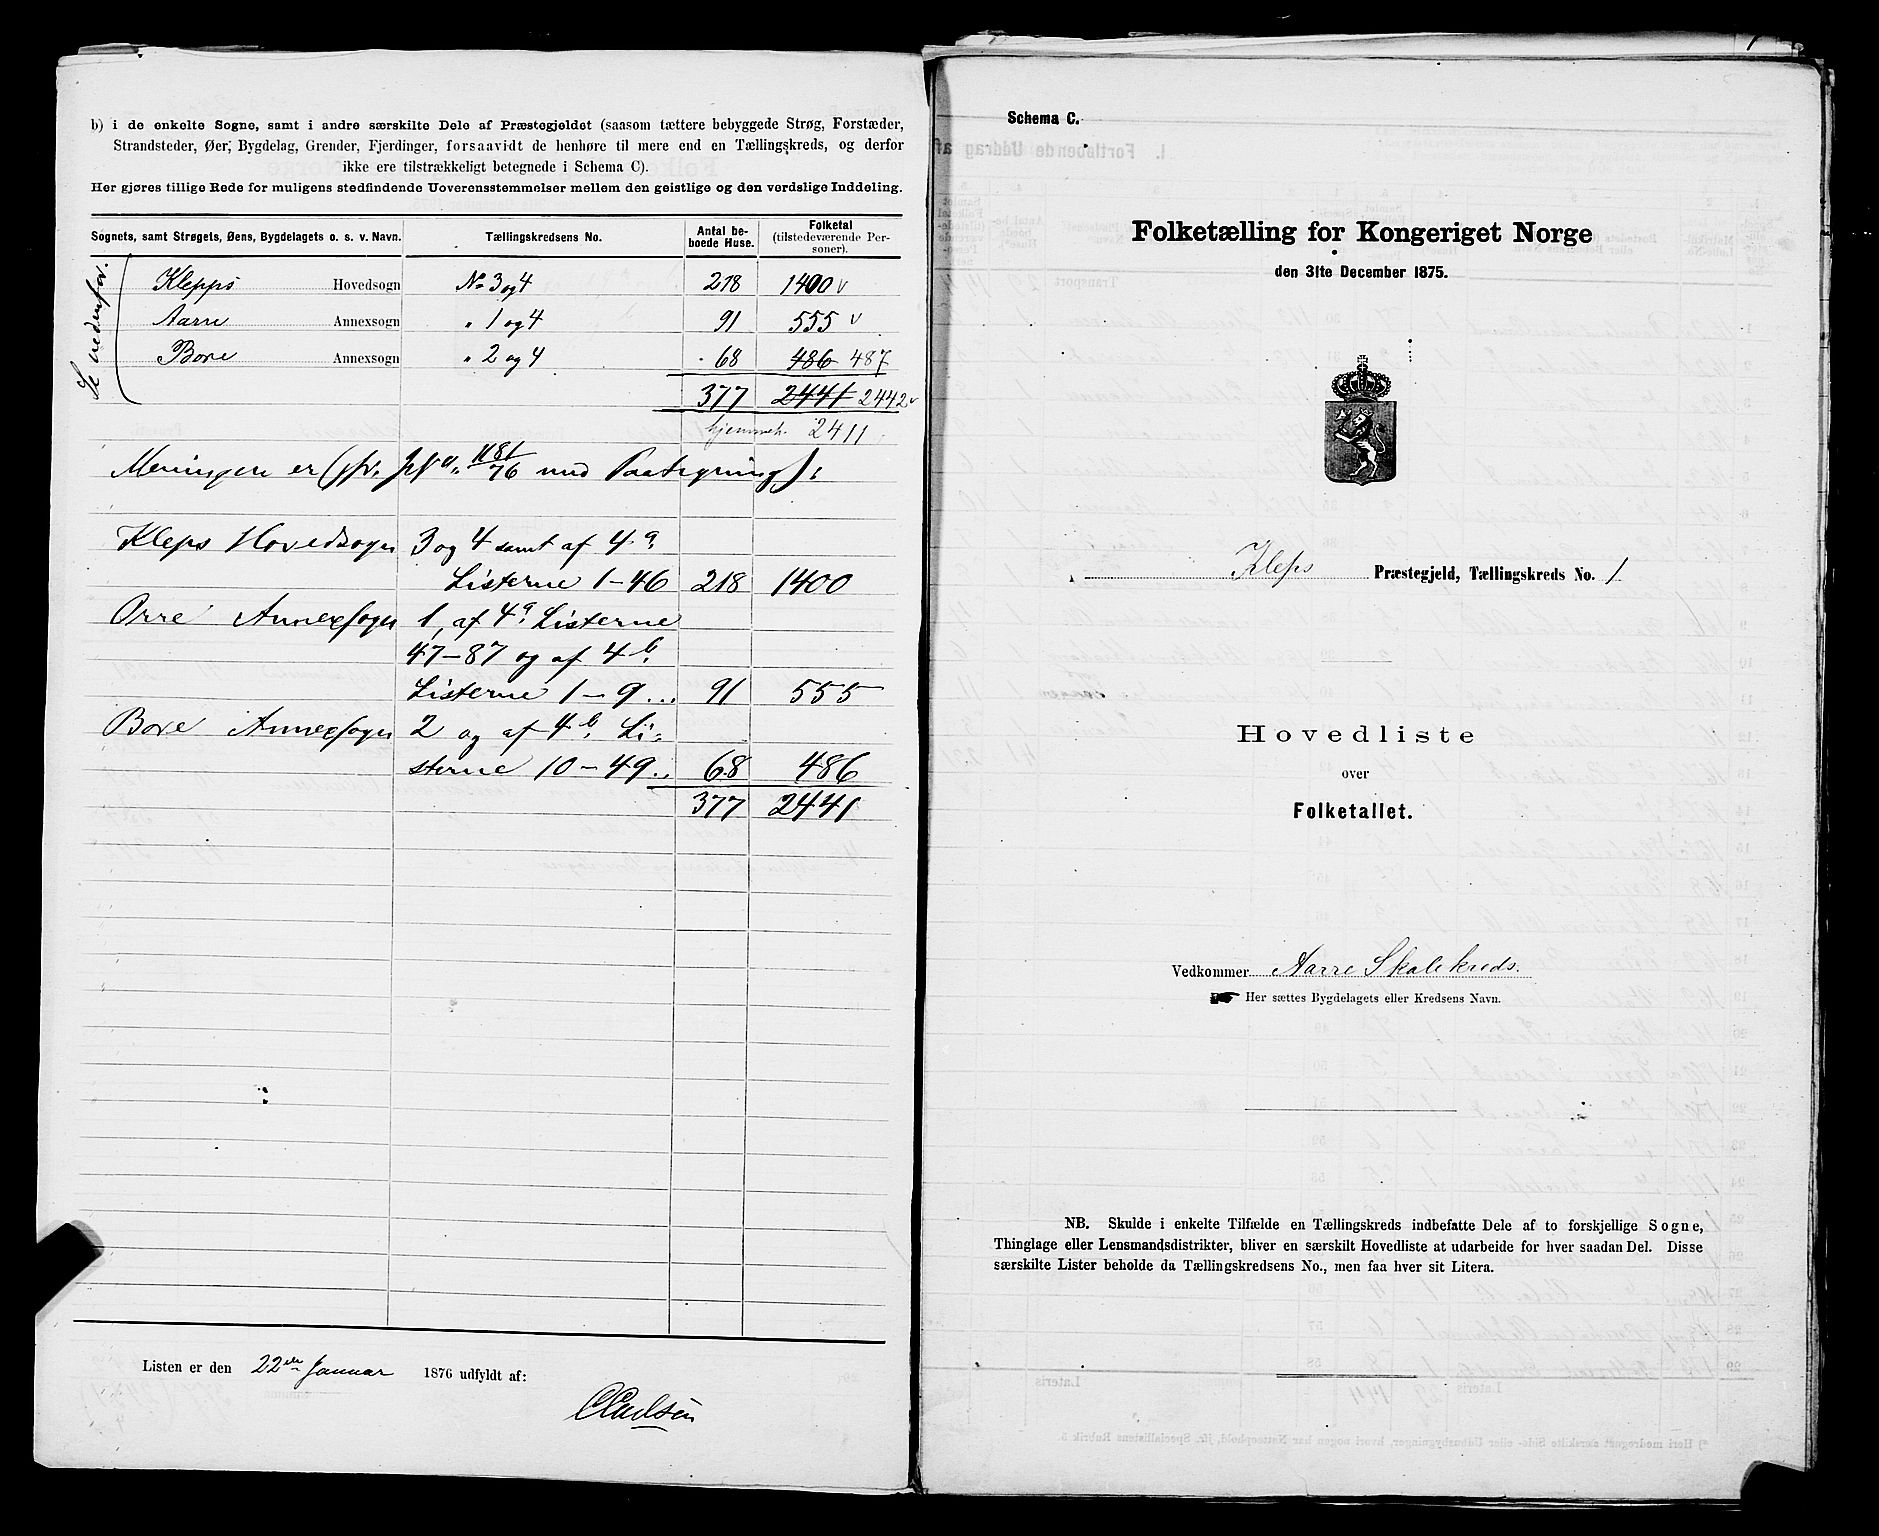 b) i de enkelte Sogne, samt i andre særskilte Dele af Præstegjeldet (saasom tættere bebyggede Strøg, Forstæder,
Strandsteder, Øer, Bygdelag, Grender, Fjerdinger, forsaavidt de henhøre til mere end en Tællingskreds, og derfor
ikke ere tilstrækkeligt betegnede i Schema C).
Her gjøres tillige Rede for muligens stedfindende Uoverensstemmelser mellem den geistlige og den verdslige Inddeling.
Sognets, samt Strøgets, Øens, Bygdelagets o. s. v. Navn. Tællingskredsens No. Antal beboede Huse. Folketal (tilstedeværende Personer).
Se nedenfor.
Klepps Hovedsogn No 3 og 4 218 1400 v
Aarre Annexsogn " 1 og 4 91 555 v
Bore Annexsogn " 2 og 4 68 486 487
377 2441 2442 v
hjemmeh. 2411
Meningen er 1181/76 med Paategning):
Kleps Hovedsogn 3 og 4 samt af 4 a.
Listerne 1-46 218 1400
Orre Annexsogn 1, af 4 a. Listerne
47-87 og af 4 b.
Listerne 1-9... 91 555
Bore Annexsogn 2 og af 4 b. Li-
sterne 10-49.. 68 486
377 2441
Listen er den 22de Januar 1876 udfyldt af:
Schema C.
Folketælling for Kongeriget Norge
den 31te December 1875.
Kleps Præstegjeld, Tællingskreds No. 1
Hovedliste
over
Folketallet.
Vedkommer Aarre Skolekreds.
Her sættes Bygdelagets eller Kredsens Navn.
NB. Skulde i enkelte Tilfælde en Tællingskreds indbefatte Dele af to forskjellige Sogne,
Thinglage eller Lensmandsdistrikter, bliver en særskilt Hovedliste at udarbeide for hver saadan Del. Disse
særskilte Lister beholde da Tællingskredsens No., men faa hver sit Litera.